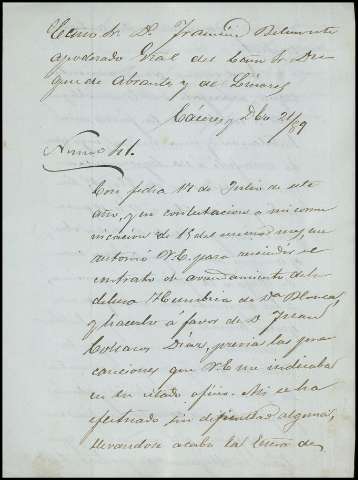 Excmo Sr. D. Joaquin Belmonte
apoderado Gral del Excmo Sr. Du-
que de Abrantes y de Linares
Caceres y Dbre 21/89
Numo 41.
Con fecha 17 de Julio de este
año, y en contestacion a mi comu-
nicacion de 15 del mismo mes, me
autorizo V.E. para rescindir el
contrato de arrendamiento de la
dehesa de Da Blanca,
y hacerlo á favor de D. Juan
Collazos Diaz, previa las pre-
canciones que V.E me indicaba
en su citado oficio. Asi se ha
efectuado sin dificultad alguna,
llevandose acabo la de